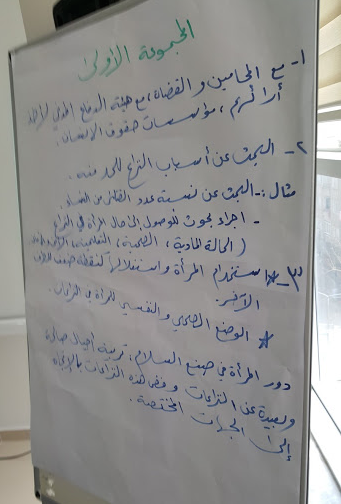 المجموعة الأولى
١- مع المحامين والقضاة، مع هيئة الدفاع المدني لأخذ
أرائهم، مؤسسات حقوق الإنسان.
٢- البحث عن أسباب النزاع للحد منه.
مثال :- البحث عن نسبة عدد القتلى من النساء.
- اجراء بحوث للوصول إلى حال المرأة في النزاع
( الحالة المادية، الصحية، التعليمية،
٣- * استخدام المرأة واستغلالها كنقطة ضعف للطرف
الآخر.
* الوضع الصحي والنفسي للمرأة في النزاعات.
دور المرأة في صنع السلام: تربية أجيال صالحة
وبعيدة عن النزاعات وفض هذه النزاعات بالإتجاه
إلى الجهات المختصة.